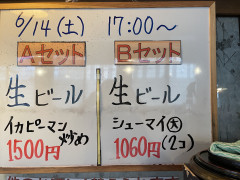 6/14(土) 17:00〜
Aセット
生ビール
イカピーマン
炒め
1500円
Bセット
生ビール
シューマイ(大)
(2コ)
1060円